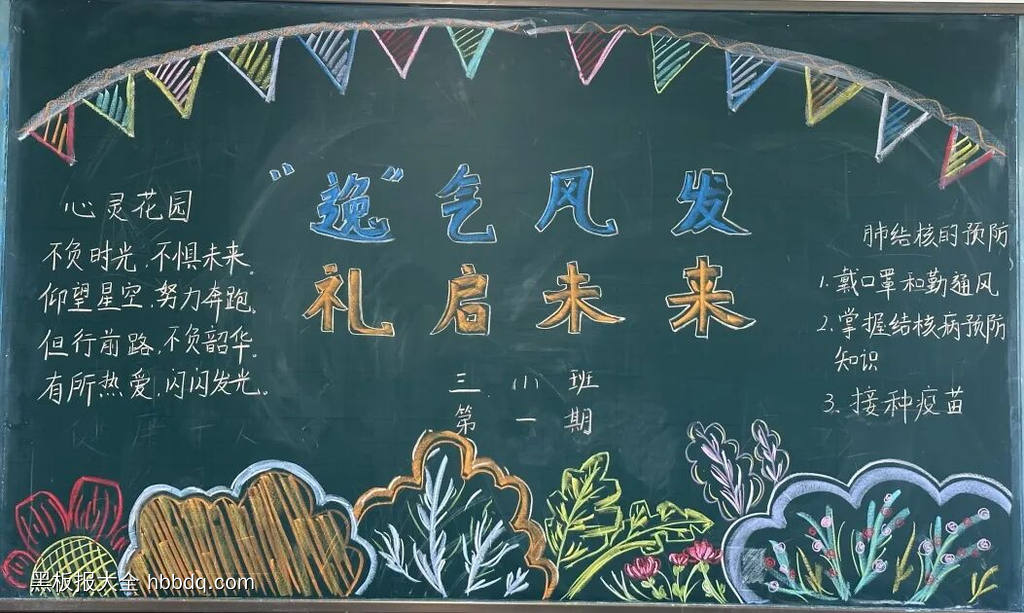 "逸"气风发
礼启未来
三小班
第一期
心灵花园
不负时光,不惧未来。
仰望星空,努力奔跑。
但行前路,不负韶华。
有所热爱,闪闪发光。
肺结核的预防
1.戴口罩和勤通风
2.掌握结核病预防
知识
3.接种疫苗
黑板报大全 hbbdq.com